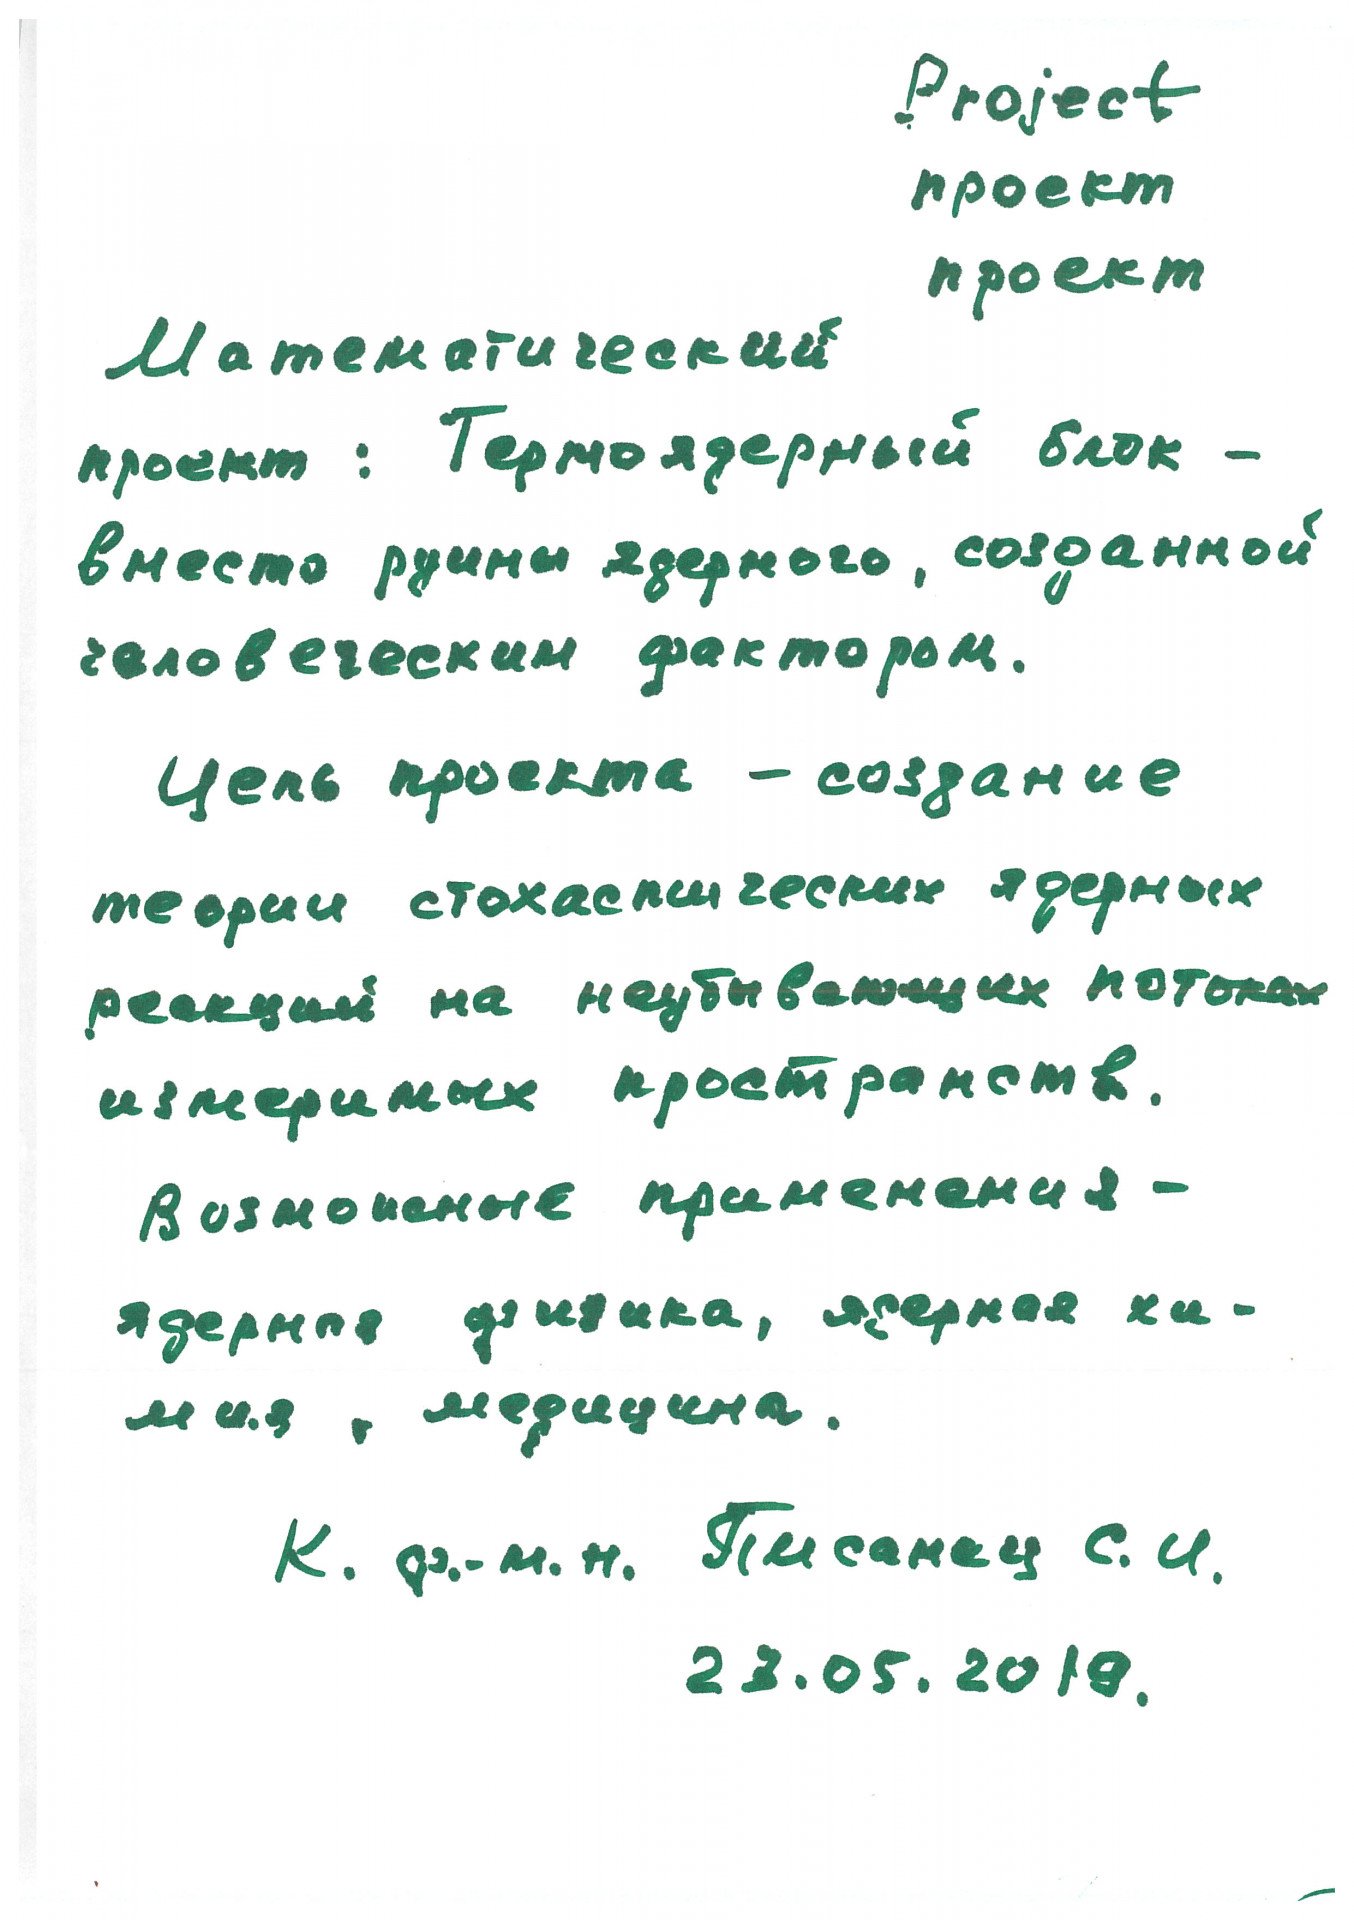 Project
проект
проект
Математический
проект: Термоядерный блок –
вместо руины ядерного, созданной
человеческим фактором.
Цель проекта – создание
теории стохастических ядерных
реакций на неубывающих потоках
измеримых пространств.
Возможные применения –
ядерная физика, ядерная хи-
мия, медицина.
К. ф.-м.н. Писанец С.И.
23.05.2019.